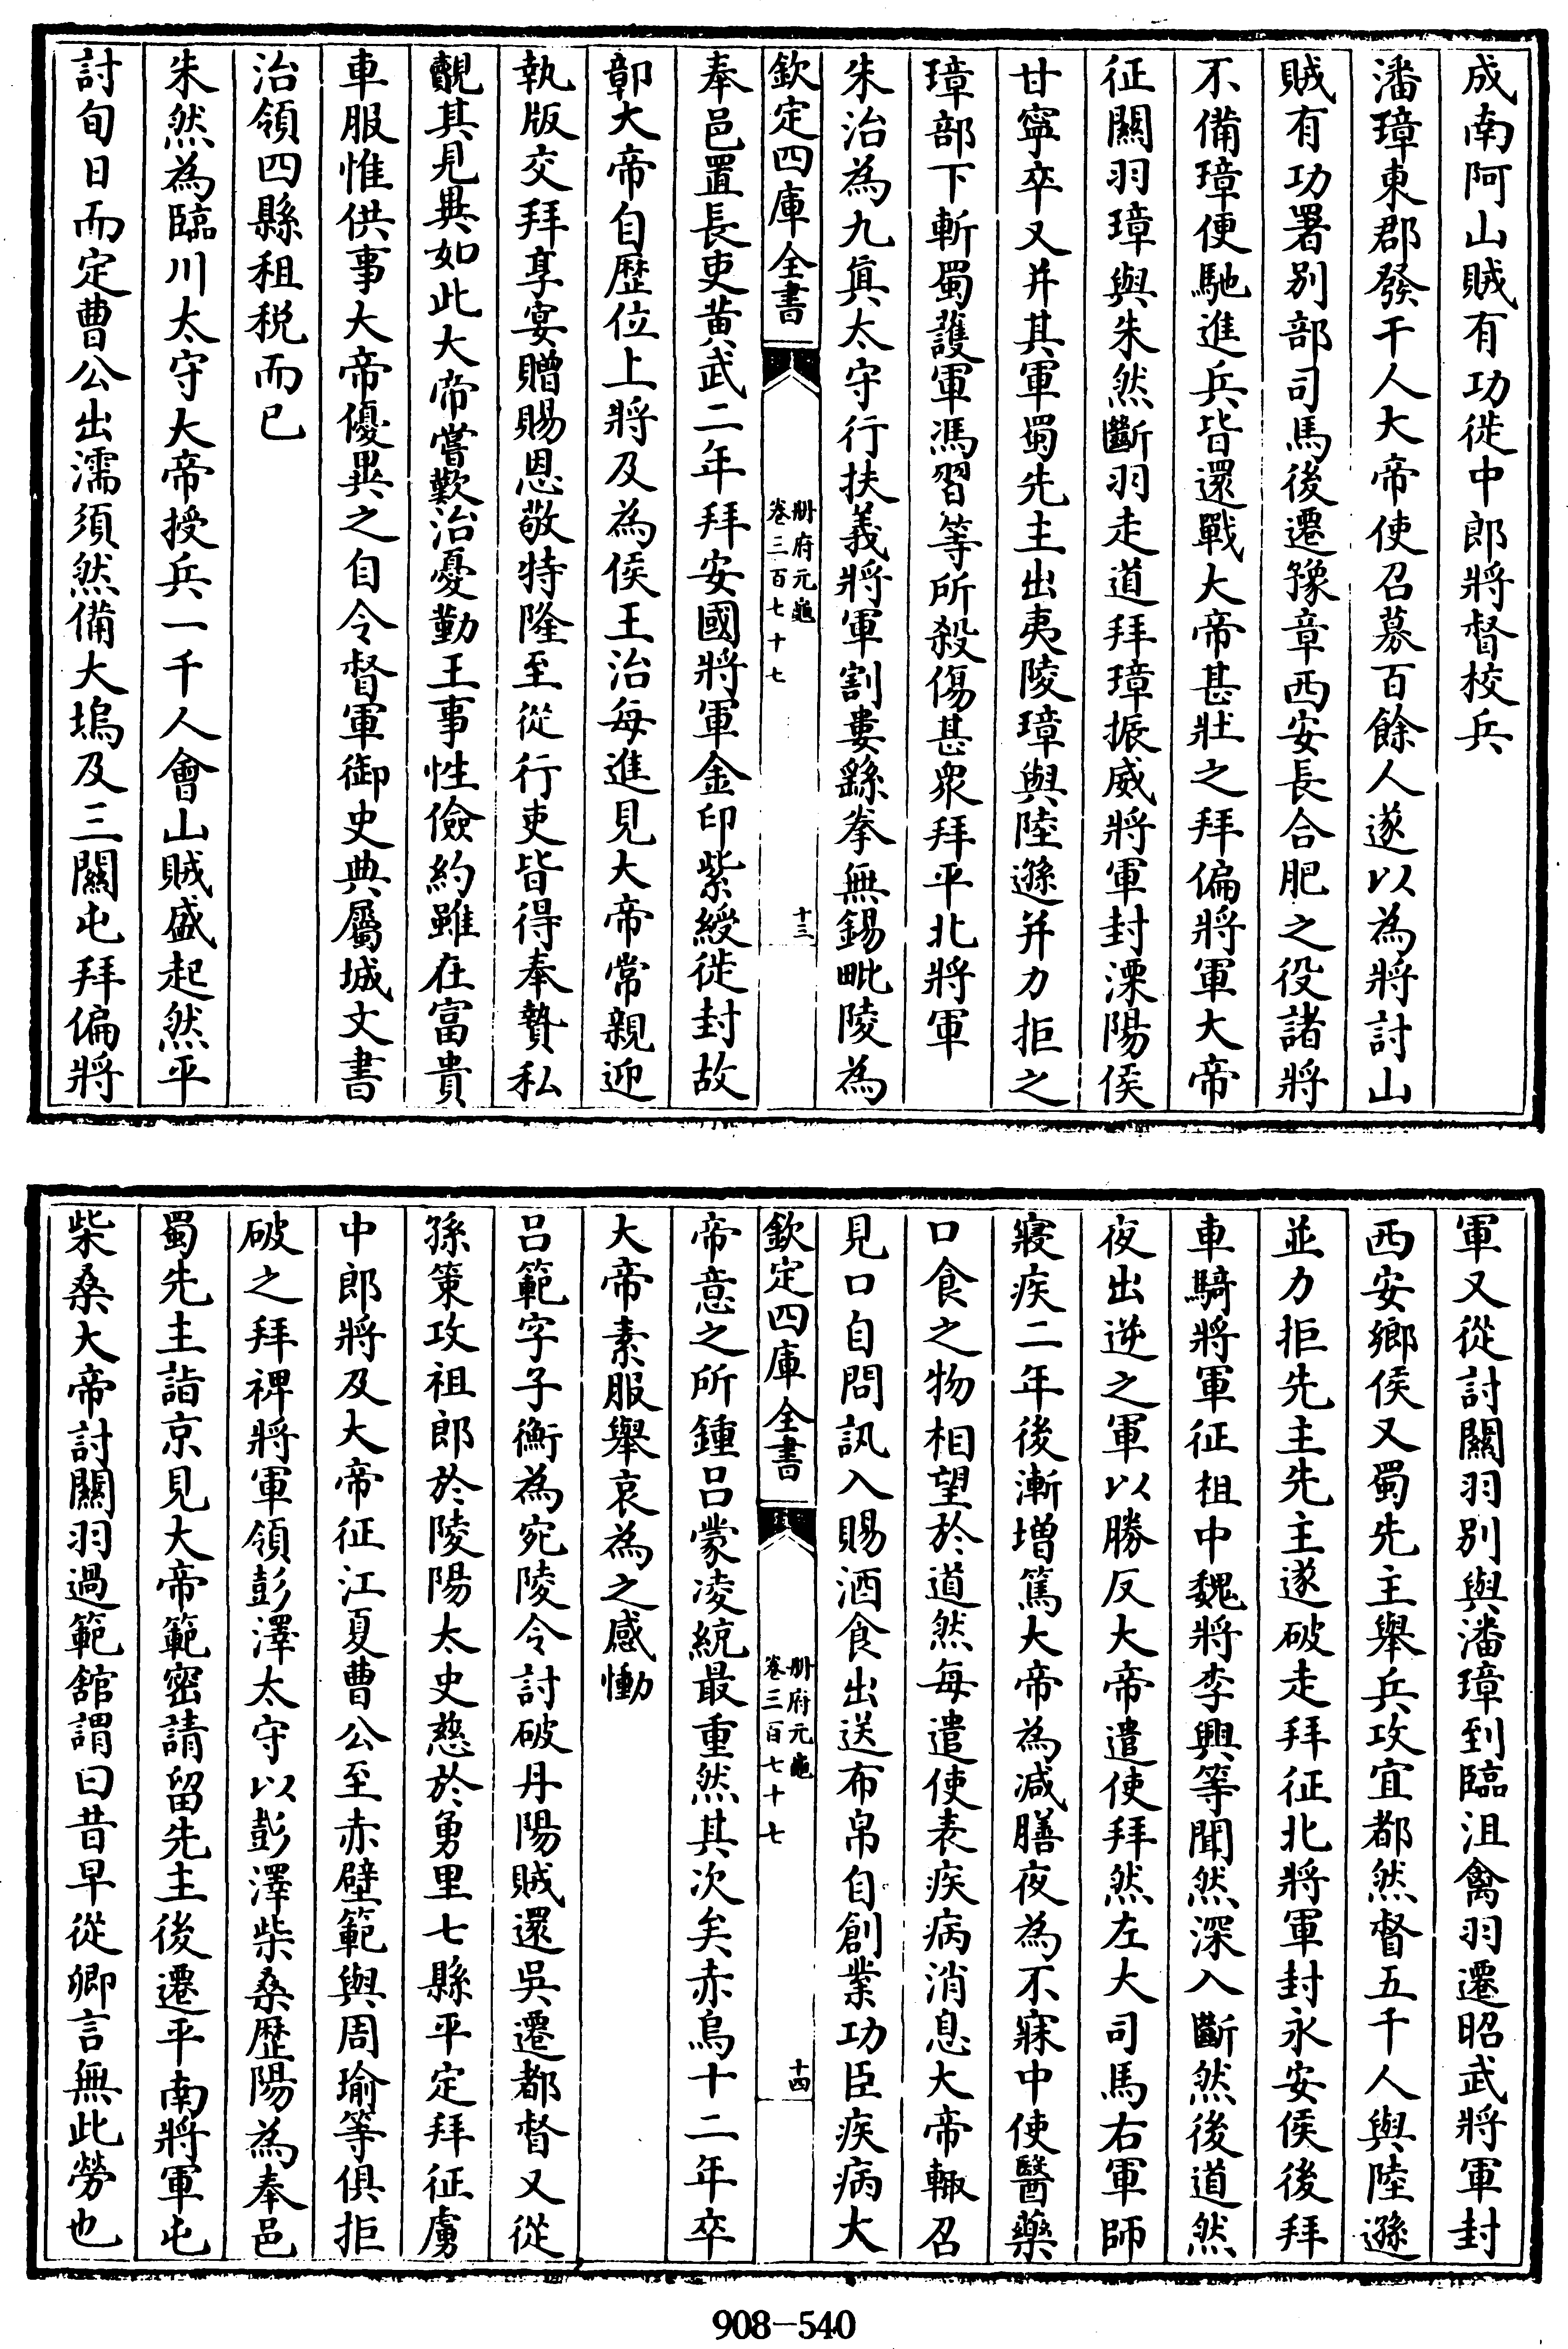 成南阿山賊有功徙中郎將督校兵
潘璋東郡發干人大帝使召募百餘人遂以為將討山
賊有功署别部司馬後遷豫章西安長合肥之役諸將
不備璋便馳進兵皆還戰大帝甚壯之拜偏將軍大帝
征關羽璋與朱然斷羽走道拜璋振威將軍封溧陽侯
甘寧卒又并其軍蜀先主出夷陵璋與陸遜并力拒之
璋部下斬蜀護軍馮習等所殺傷甚衆拜平北將軍
朱治為九真太守行扶義將軍割婁繇拳無錫毗陵為
欽定四庫全書
册府元龜
卷三百七十七
十三
奉邑置長吏黄武二年拜安國將軍金印紫綬徙封故
鄣大帝自歴位上將及為侯王治每進見大帝常親迎
執版交拜享宴贈賜恩敬特隆至從行吏皆得奉贄私
覿其見異如此大帝嘗歎治憂勤王事性儉約雖在富貴
車服惟供事大帝優異之自令督軍御史典屬城文書
治領四縣租税而已
朱然為臨川太守大帝授兵一千人會山賊盛起然平
討旬日而定曹公出濡須然備大塢及三關屯拜偏將
軍又從討關羽别與潘璋到臨沮禽羽遷昭武將軍封
西安鄉侯又蜀先主舉兵攻宜都然督五千人與陸遜
並力拒先主先主遂破走拜征北將軍封永安侯後拜
車騎將軍征柤中魏將李興等聞然深入斷然後道然
夜出逆之軍以勝反大帝遣使拜然左大司馬右軍師
寢疾二年後漸增篤大帝為减膳夜為不寐中使醫藥
口食之物相望於道然每遣使表疾病消息大帝輙召
見口自問訊入賜酒食出送布帛自創業功臣疾病大
欽定四庫全書
册府元龜
卷三百七十七
十四
帝意之所鍾吕蒙凌統最重然其次矣赤烏十二年卒
大帝素服舉哀為之感慟
吕範字子衡為宛陵令討破丹陽賊還吳遷都督又從
孫策攻祖郎於陵陽太史慈於勇里七縣平定拜征虜
中郎將及大帝征江夏曹公至赤壁範與周瑜等俱拒
破之拜裨將軍領彭澤太守以彭澤柴桑歴陽為奉邑
蜀先主詣京見大帝範密請留先主後遷平南將軍屯
柴桑大帝討關羽過範舘謂曰昔早從卿言無此勞也
908-540